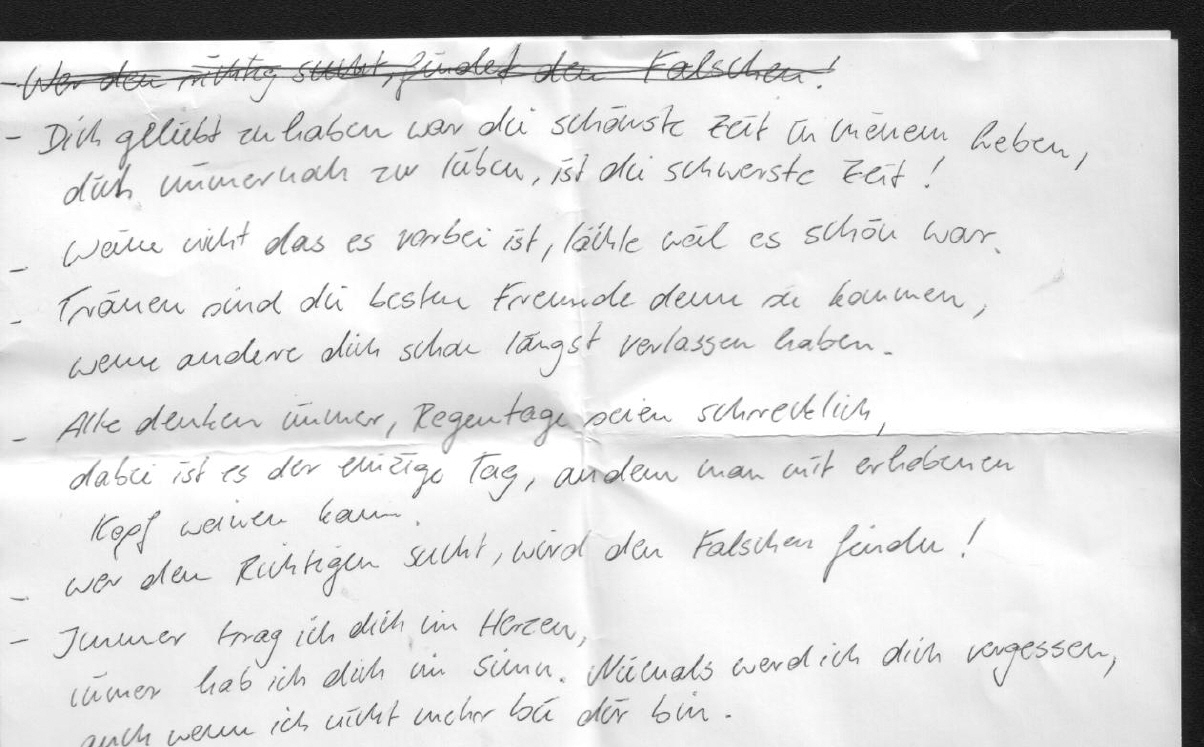 - Wer den richtig sucht, findet den Falschen!
- Dich geliebt zu haben war die schönste Zeit in meinem Leben,
dich immernoch zu lieben, ist die schwerste Zeit!
- Weine nicht das es vorbei ist, lächle weil es schön war.
- Tränen sind die besten Freunde denn sie kommen,
wenn andere dich schon längst verlassen haben.
- Alle denken immer, Regentage seien schrecklich,
dabei ist es der einzige Tag, an dem man mit erhobenen
Kopf weinen kann.
- Wer den Richtigen sucht, wird den Falschen finden!
- Immer trag ich dich im Herzen,
immer hab ich dich im Sinn. Niemals werd ich dich vergessen,
auch wenn ich nicht mehr bei dir bin.